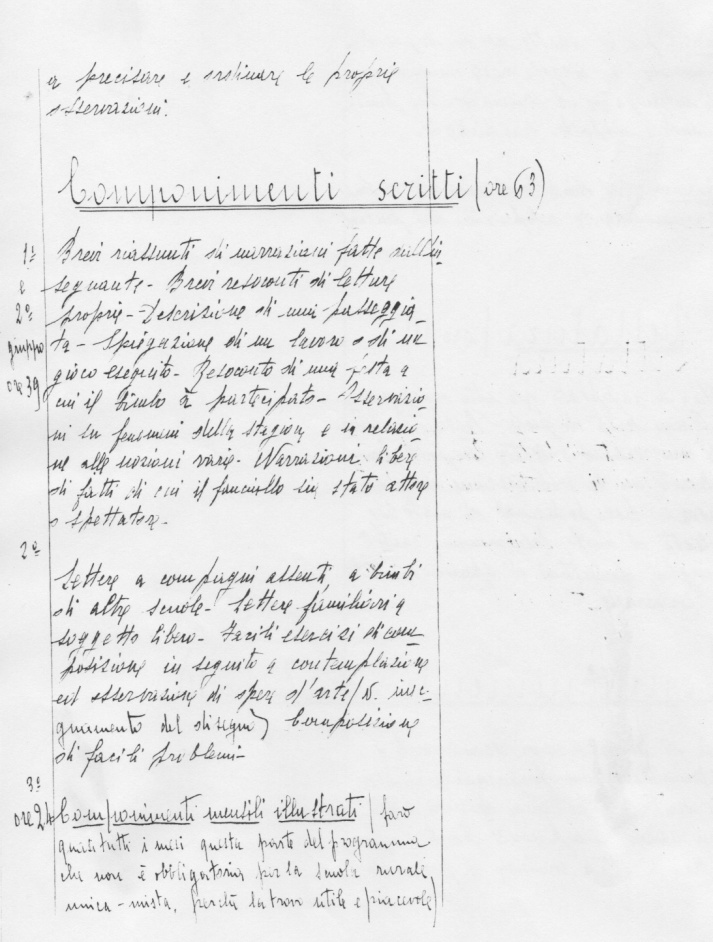 a precisare e ordinare le proprie
osservazioni.
Componimenti scritti (ore 63)
1º Brevi riassunti di narrazioni fatte dall'in-
e segnante - Brevi resoconti di letture
2º proprie - Descrizione di una passeggia-
gruppo ta - Spiegazione di un lavoro o di un
ore 39 gioco eseguito - Resoconto di una festa a
cui il bimbo à partecipato - Osservazio-
ni su fenomeni della stagione e in relazio-
ne alle nozioni varie - Narrazioni libere
di fatti di cui il fanciullo sia stato attore
o spettatore -
2º
Lettere a compagni assenti, a bimbi
di altre scuole - Lettere familiari a
soggetto libero - Facili esercizi di com-
posizione in seguito a contemplazione
ed osservazione di opere d'arte (v. inse-
gnamento del disegno) Composizione
di facili problemi -
3º
ore 24 Componimenti mensili illustrati (farò
quasi tutti i mesi questa parte del programma
che non è obbligatoria per la scuola rurale,
unica - mista, perchè la trovo utile e piacevole)